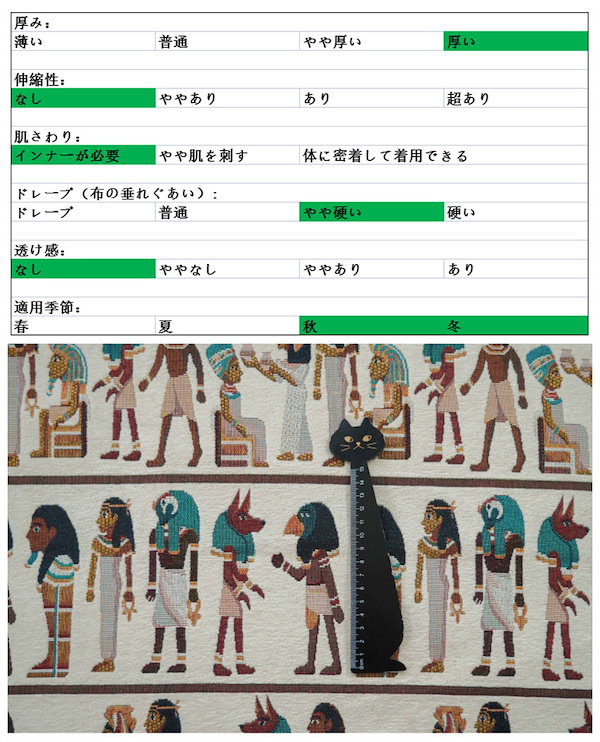 厚み：
薄い 普通 やや厚い 厚い
伸縮性：
なし ややあり あり 超あり
肌さわり：
インナーが必要 やや肌を刺す 体に密着して着用できる
ドレープ（布の垂れぐあい）：
ドレープ 普通 やや硬い 硬い
透け感：
なし ややなし ややあり あり
適用季節：
春 夏 秋 冬
15
14
13
12
11
10
9
8
7
6
5
4
3
2
1
0cm